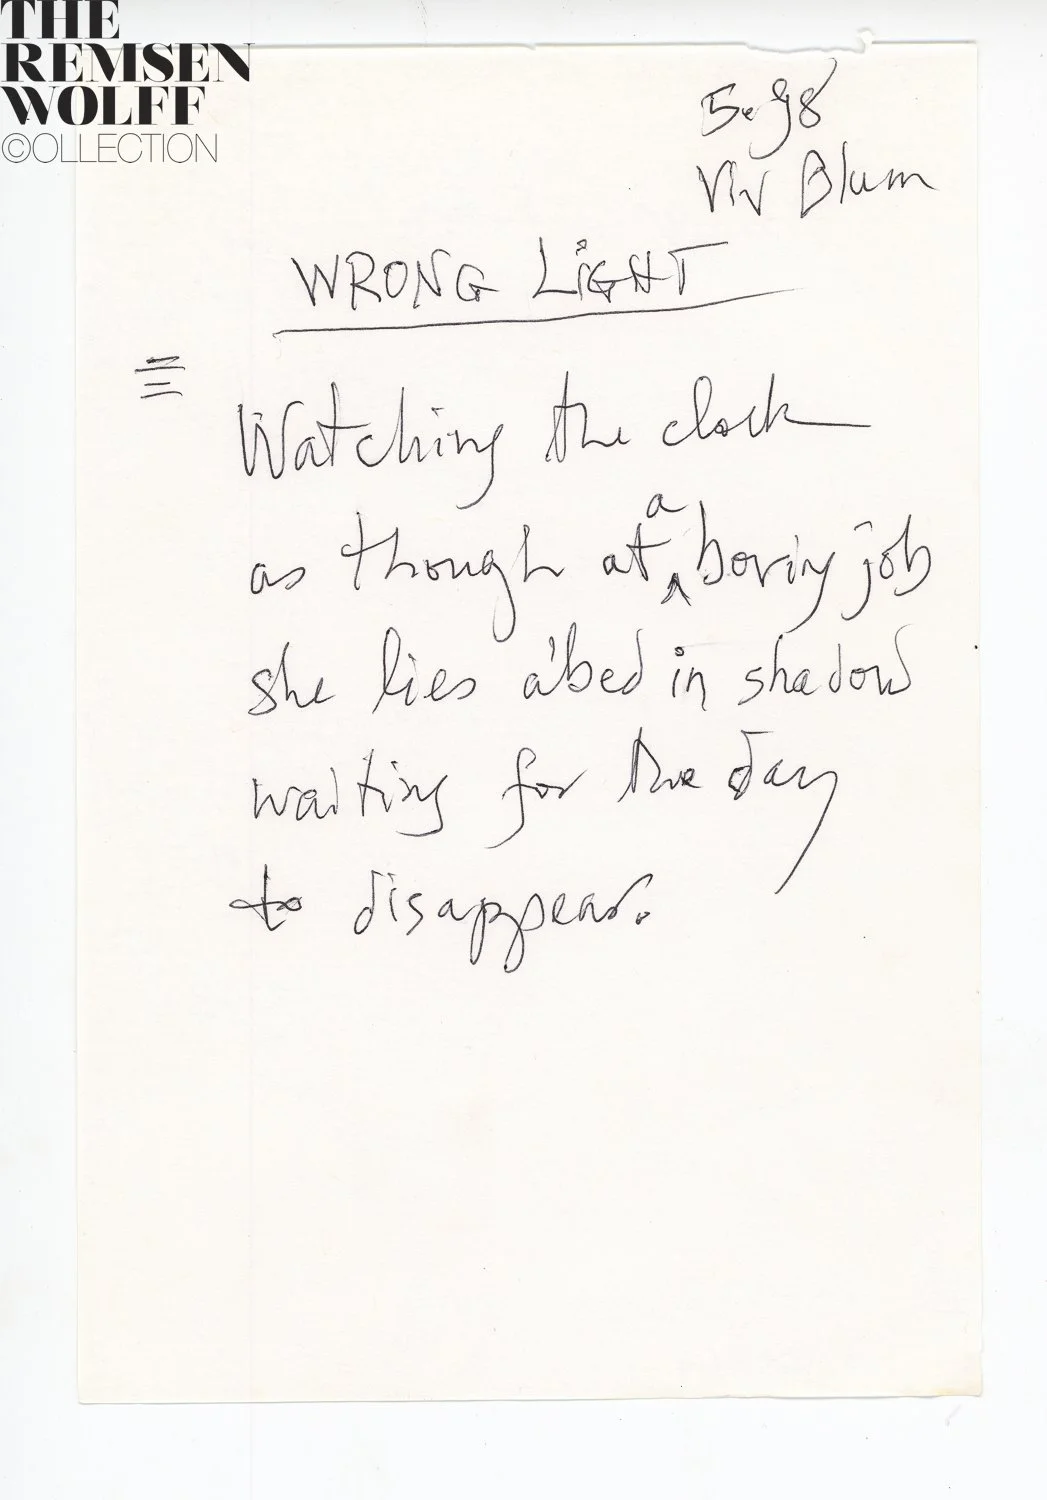 THE
REMSEN
WOLFF
©OLLECTION
5.98
Viv Blum
WRONG LiGHT
Watching the clock
as though at a boring job
she lies a'bed in shadow
waiting for the day
to disappear.